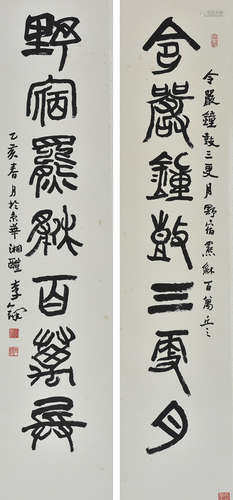 令嚴鐘鼓三更月
令嚴鐘鼓三更月野宿羆貅百萬兵
野宿羆貅百萬兵
乙亥春月於京華湘醴李鐸